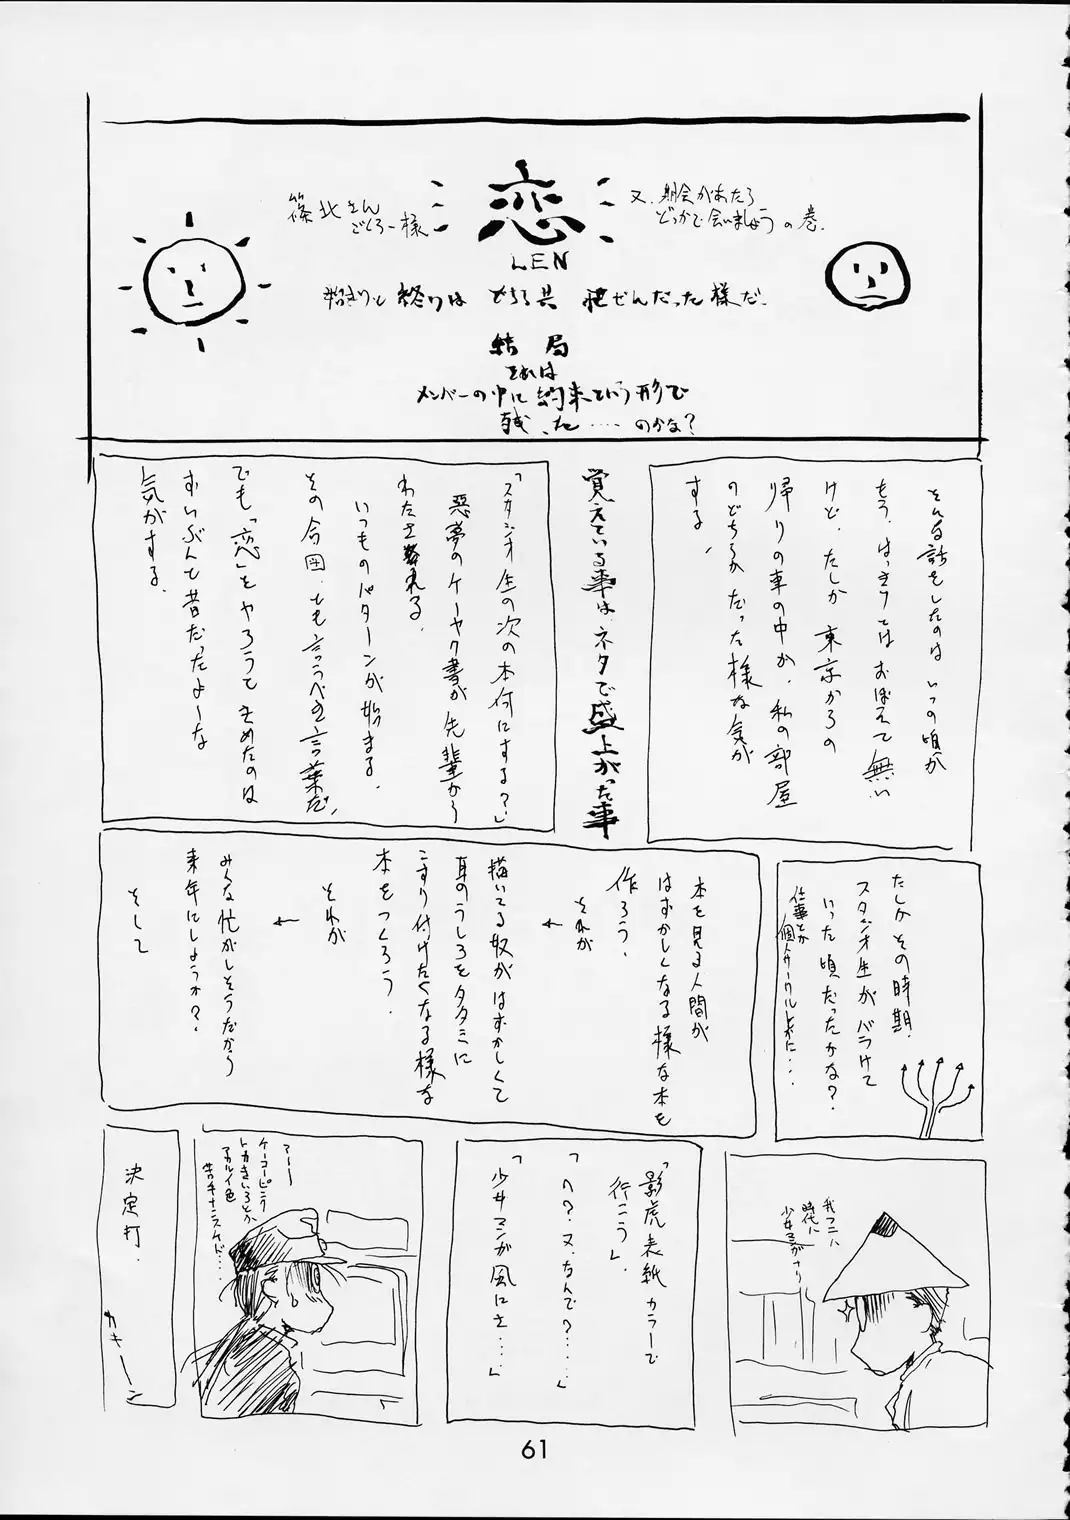 篠北さん
ごくろー様
恋
LEN
又、機会があたら
どっかで会いましょうの巻.
始まりと終りはどちら共 漠ぜんだった様だ.
結局
それは
メンバーの中に約束という形で
残った……のかな?
そんな話をしたのはいつの頃か
もう、はっきりではおぼえて無い
けど、たしか東京からの
帰りの車の中か、私の部屋
のどちらかだった様な気が
する、
覚えている事は、ネタで盛上がった事
「スタジオ生の次の本何にする?」
悪夢のケーヤク書が先輩から
わたされる.
いつものパターンが始まる.
その合図、とも言うべき言葉だ、
でも「恋」をやろうてきめたのは
ずいぶんて昔だったよーな
気がする.
たしかその時期.
スタジオ生がバラけて
いった頃だったかな?.
仕事とか
個人サークルとかに…
本を見る人間が
はずかしくなる様な本を
作ろう.
それが
←
描いてる奴がはずかしくて
耳のうしろをタタミに
こすり付けたくなる様な
本をつくろう.
それが
←
みんな忙がしそうだから
来年にしようか?.
そして
我フニハ
時代に
少女マンガナリ
「影虎表紙カラーで
行こう」.
「へ?.又.なんで?……」
「少女マンガ風にさ……」
アーー
ケーコーピンク
トカきいろとか
アカルイ色
苦手ナニスケド…
決定打.
カキーーン
61